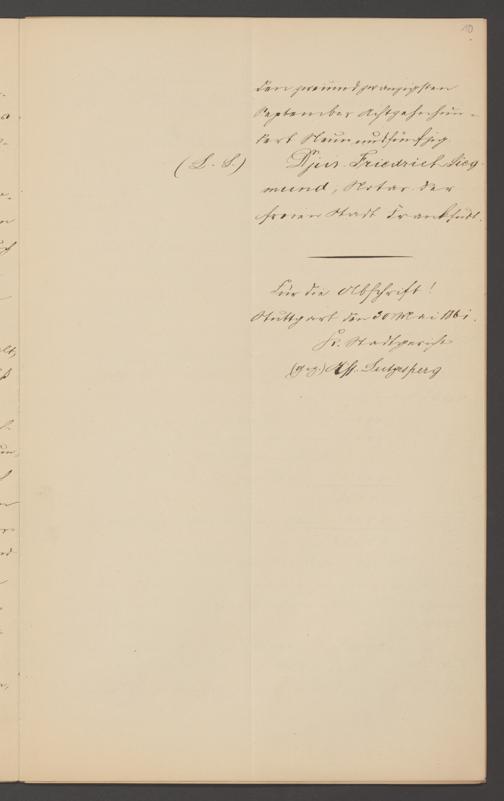 10
den zweiundzwanzigsten
September Achtzehnhun-
dert Neunundfünfzig.
(L. S.) Djur. Friedrich Sieg-
mund, Notar der
freien Stadt Frankfurt.
Für die Abschrift!
Stuttgart den 20 Mai 1861.
K. Stadtgericht
(gez.) Aff.